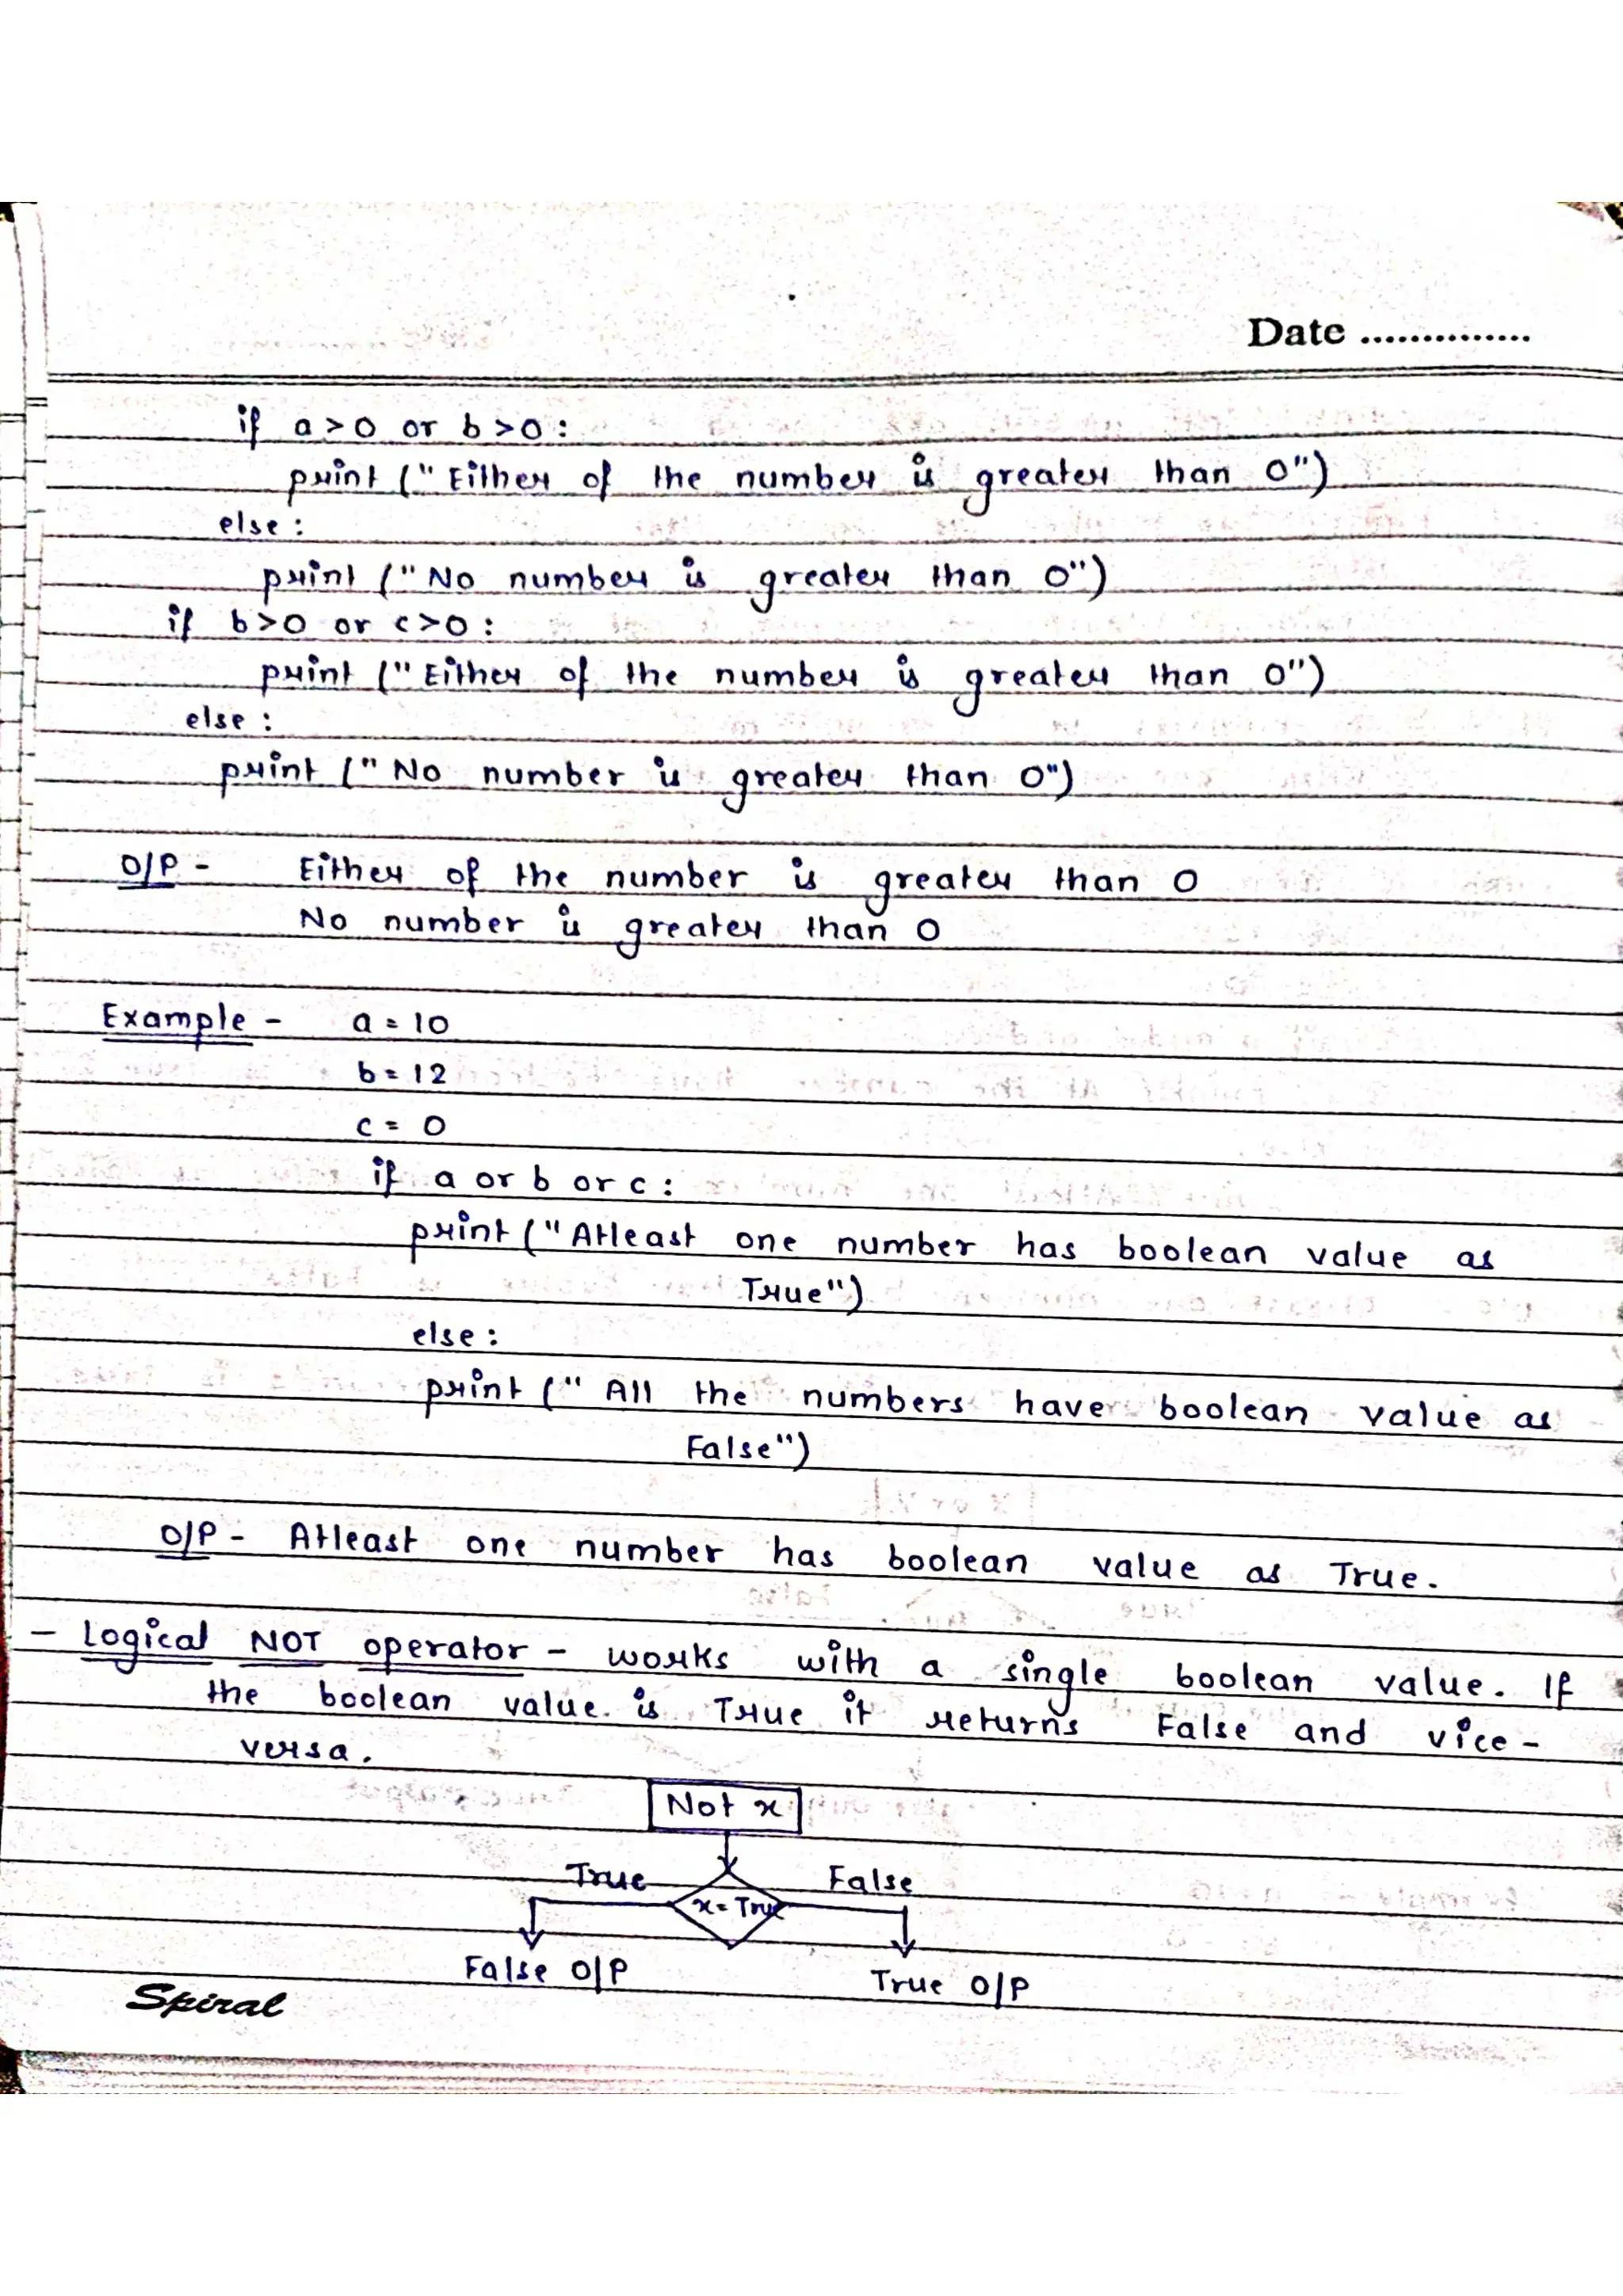 Date ...............
if a>0 or b>0:
print ("Either of the number is greater than 0")
else:
print ("No number is greater than 0")
if b>0 or c>0:
print ("Either of the number is greater than 0")
else:
print ("No number is greater than 0")
O/P - Either of the number is greater than 0
No number is greater than 0
Example - a = 10
b = 12
c = 0
if a or b or c:
print ("Atleast one number has boolean value as
True")
else:
print (" All the numbers have boolean value as
False")
O/P - Atleast one number has boolean value as True.
- Logical NOT operator - works with a single boolean value. If
the boolean value is True it returns False and vice-
versa.
Not x
True False
x = True
False O/P True O/P
Spiral